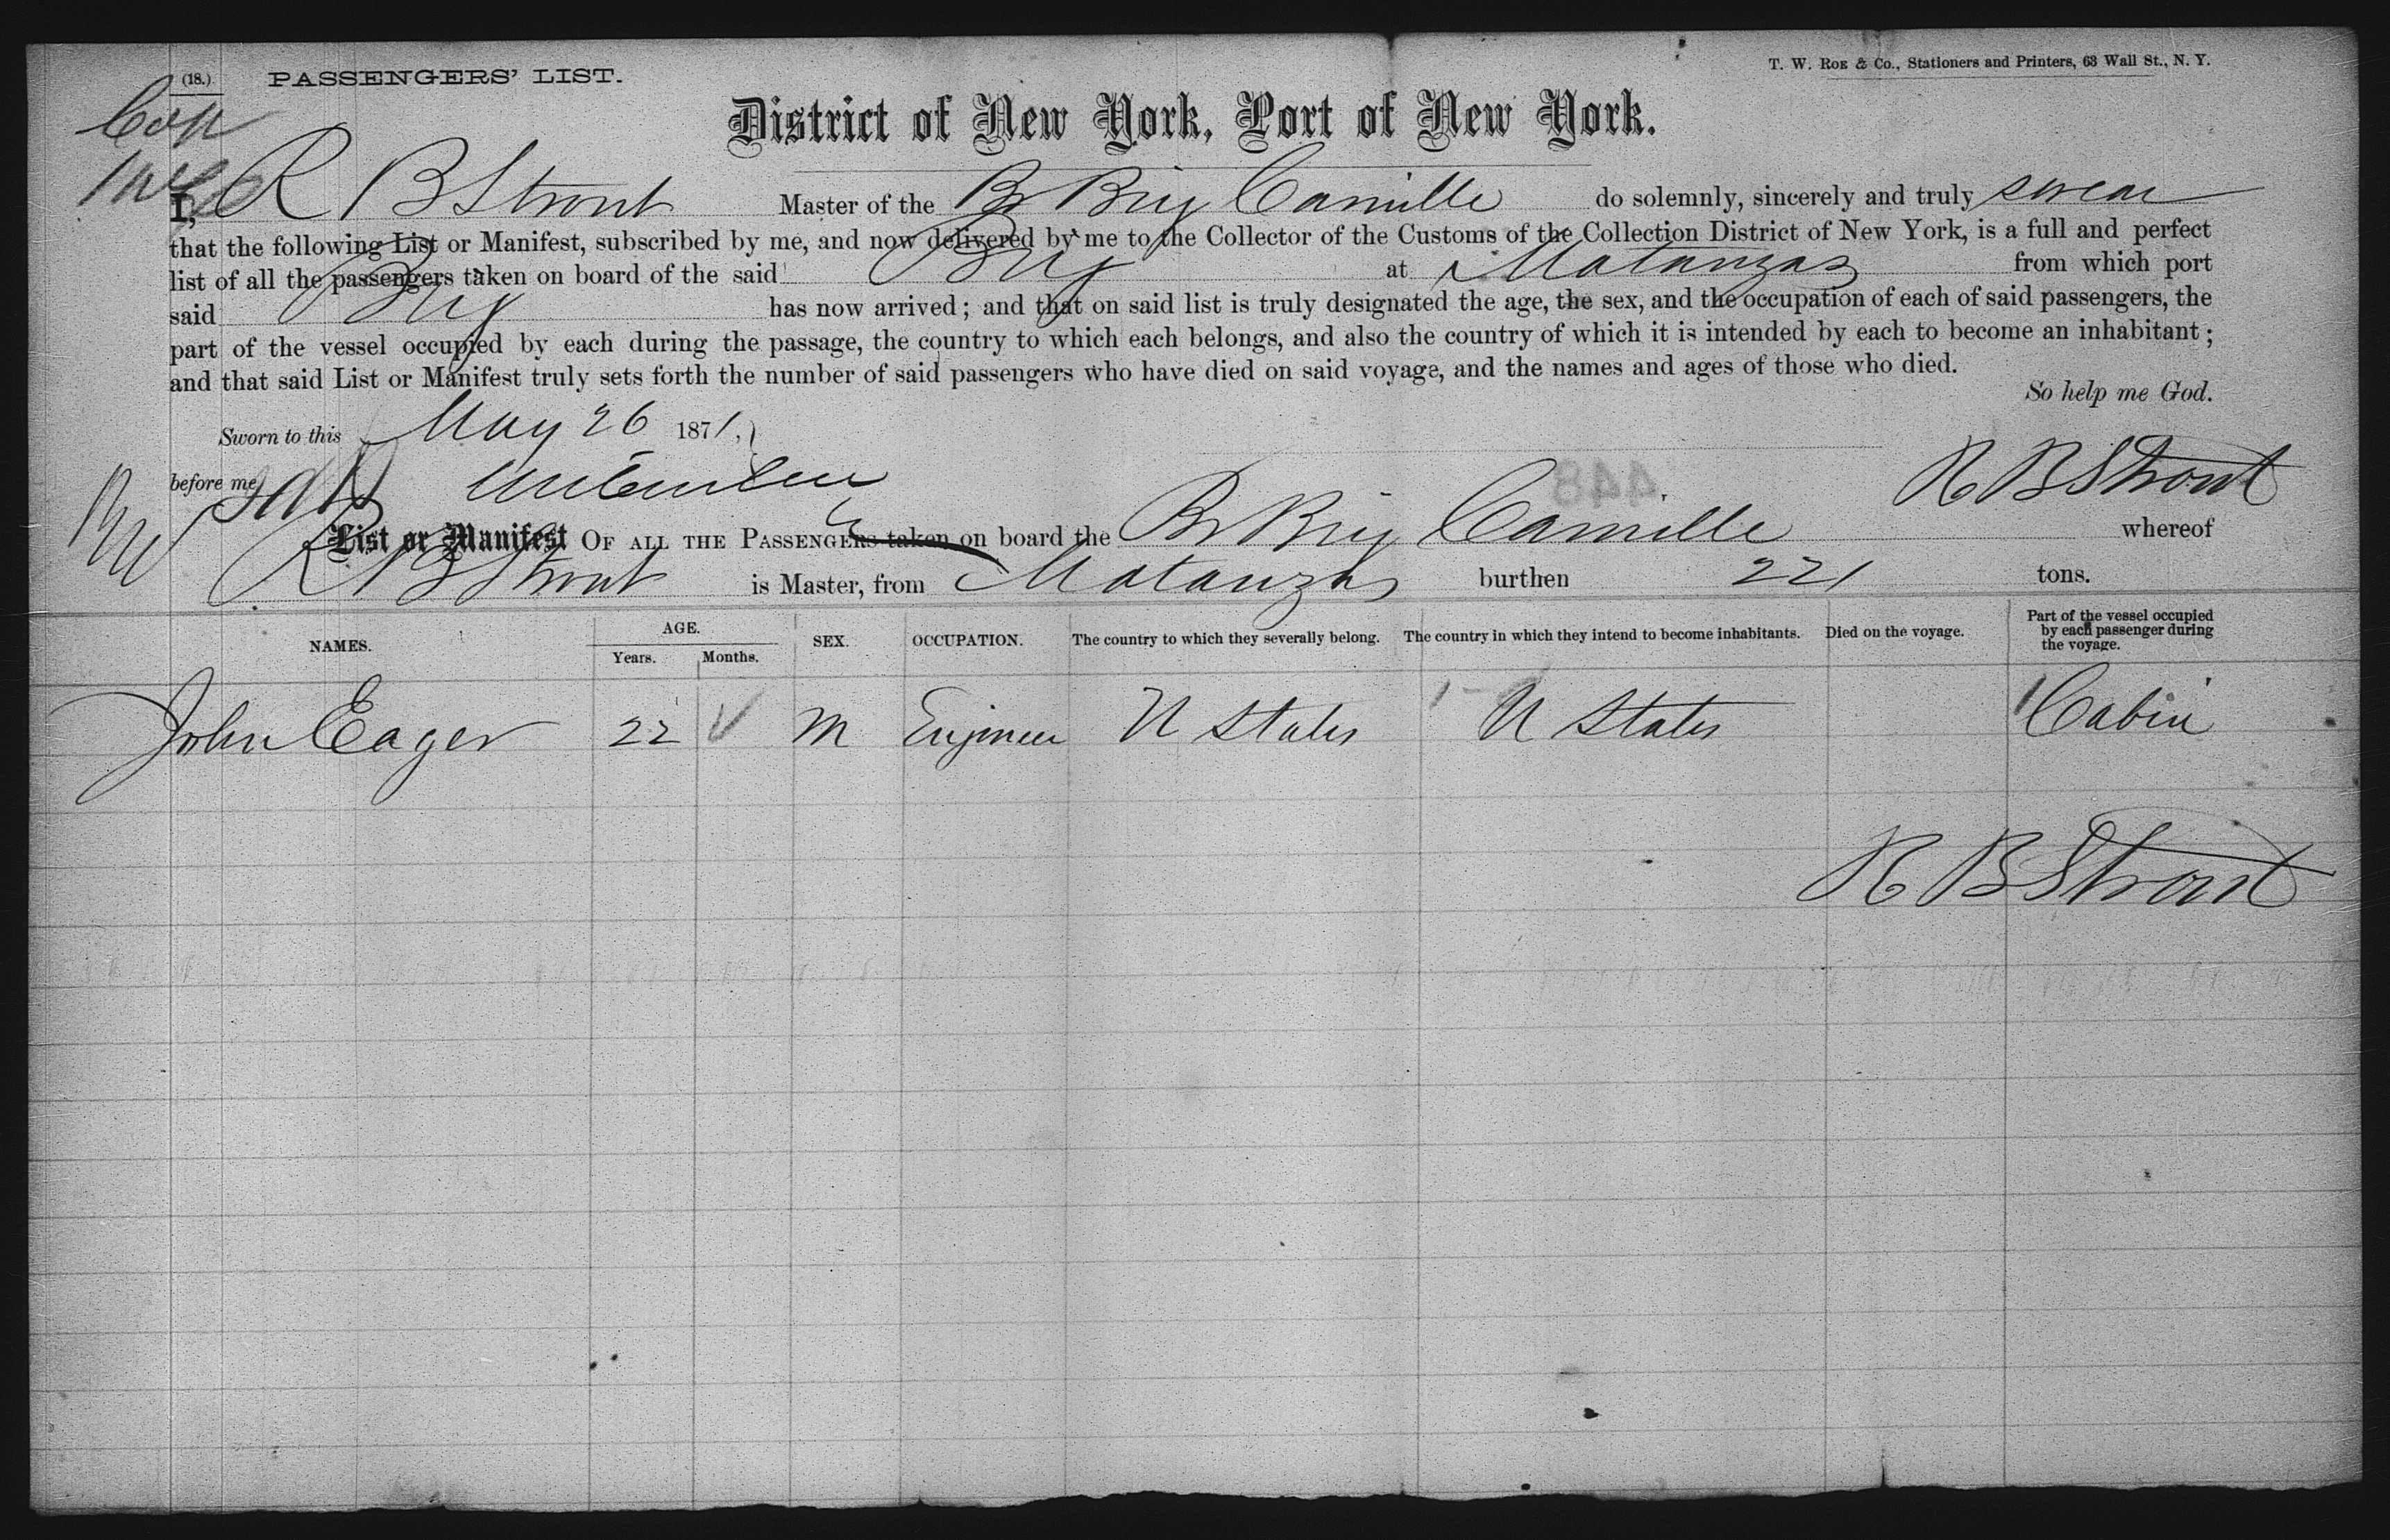 (18.) PASSENGERS' LIST.
T. W. ROE & Co., Stationers and Printers, 63 Wall St., N. Y.
District of New York, Port of New York.
I, R B Strout Master of the Br Brig Camille do solemnly, sincerely and truly swear
that the following List or Manifest, subscribed by me, and now delivered by me to the Collector of the Customs of the Collection District of New York, is a full and perfect
list of all the passengers taken on board of the said Brig at Matanzas from which port
said Brig has now arrived; and that on said list is truly designated the age, the sex, and the occupation of each of said passengers, the
part of the vessel occupied by each during the passage, the country to which each belongs, and also the country of which it is intended by each to become an inhabitant;
and that said List or Manifest truly sets forth the number of said passengers who have died on said voyage, and the names and ages of those who died.
So help me God.
Sworn to this May 26 1871,
before me
R B Strout
448
List or Manifest OF ALL THE PASSENGERS taken on board the Br Brig Camille whereof
R B Strout is Master, from Matanzas burthen 221 tons.
NAMES. AGE. Years. Months. SEX. OCCUPATION. The country to which they severally belong. The country in which they intend to become inhabitants. Died on the voyage. Part of the vessel occupied by each passenger during the voyage.
John Eager 22 M Engineer U States U States Cabin
R B Strout